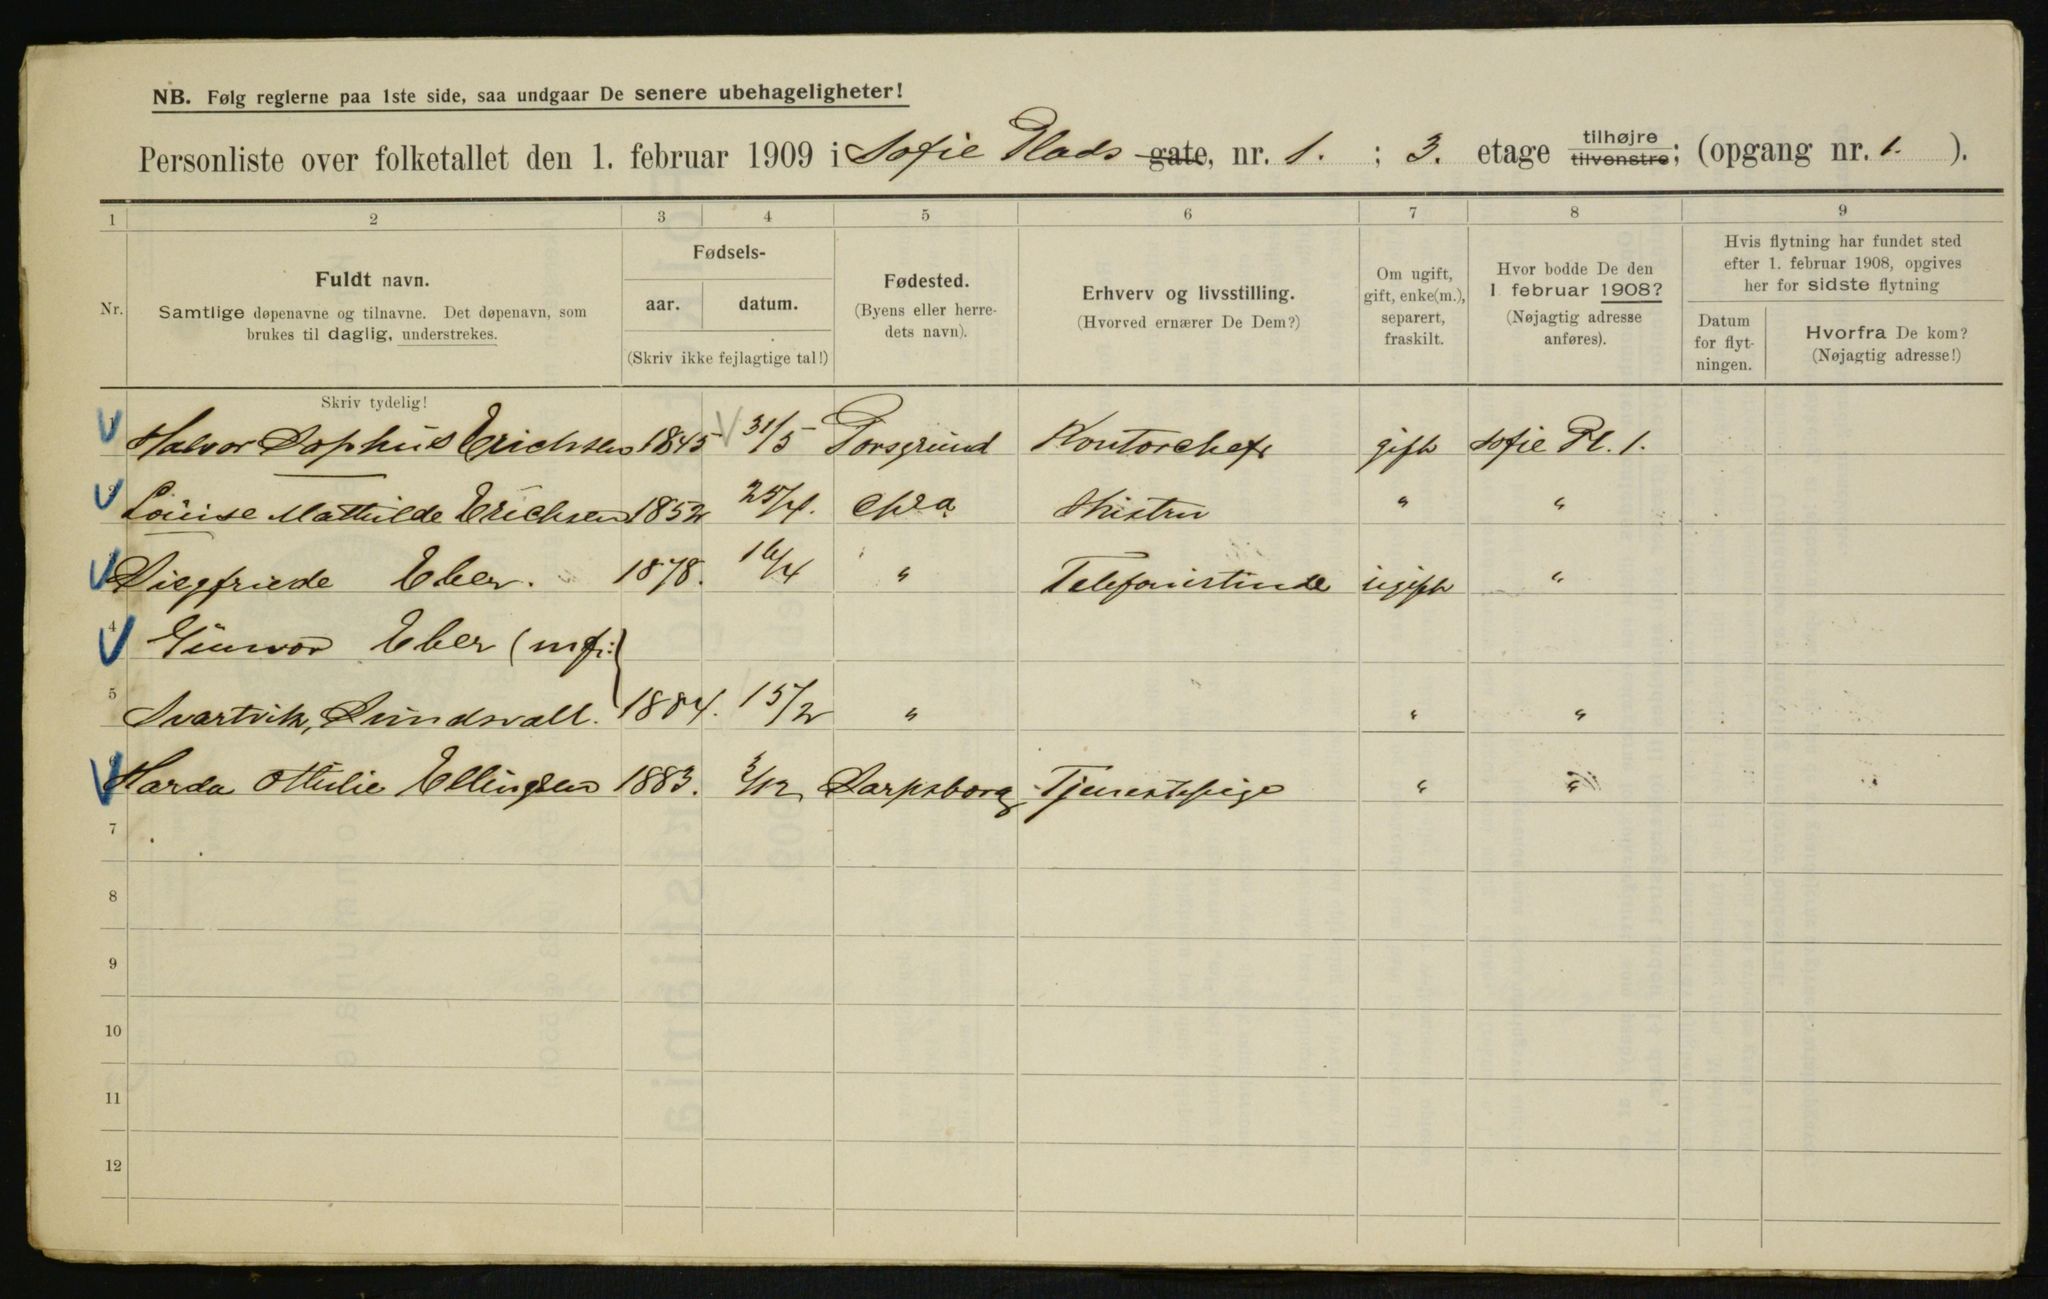 NB. Følg reglerne paa 1ste side, saa undgaar De senere ubehageligheter!
Personliste over folketallet den 1. februar 1909 i Sofie Plads gate, nr. 1. ; 3. etage tilhøjre tilvenstre; (opgang nr. 1. ).
1 2 3 4 5 6 7 8 9
Nr.
Fuldt navn.
Samtlige døpenavne og tilnavne. Det døpenavn, som
brukes til daglig, understrekes.
Fødsels-
aar. datum.
(Skriv ikke fejlagtige tal!)
Fødested.
(Byens eller herre-
dets navn).
Erhverv og livsstilling.
(Hvorved ernærer De Dem?)
Om ugift,
gift, enke(m.),
separert,
fraskilt.
Hvor bodde De den
1 februar 1908?
(Nøjagtig adresse
anføres).
Hvis flytning har fundet sted
efter 1. februar 1908, opgives
her for sidste flytning
Datum
for flyt-
ningen.
Hvorfra De kom?
(Nøjagtig adresse!)
Skriv tydelig!
Halvor Sophus Erichsen 1845 31/5 Porsgrund Kontorchef gift Sofie Pl. 1.
Louise Mathilde Erichsen 1852 25/4. Chra Hustru " "
Siegfriede Eber. 1878. 16/4 " Telefonistinde ugift "
4 Gunvor Eber (
5 Svartvik, Sundsvall. 1884. 15/2 " " "
6 Harda Othilie Ellingsen 1883. 3/12 Sarpsborg Tjenestepige " "
7
8
9
10
11
12